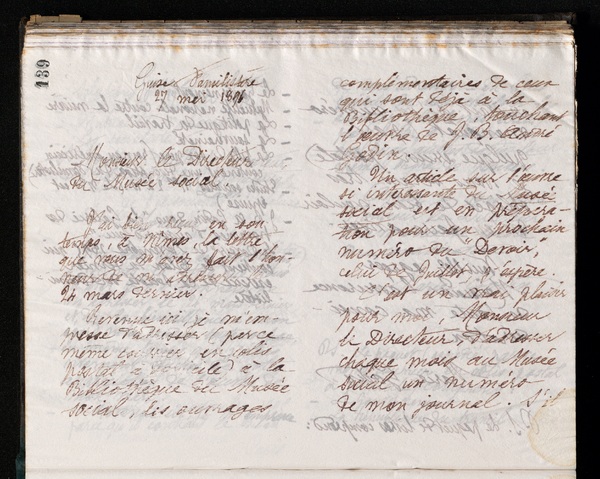 139
Guise Familistère
27 mai 1896
Monsieur le Directeur
du Musée social
J'ai bien reçu en son
temps, à Nîmes, la lettre
que vous m'avez fait l'hon-
neur de m'adresser le
24 mars dernier.
Revenue ici, je m'em-
presse d'adresser (par ce
même courrier, en colis
postal à domicile) à la
Bibliothèque du Musée
social, les ouvrages
complémentaires de ceux
qui sont déjà à la
Bibliothèque, touchant
l'œuvre de J. B. André
Godin.
Un article sur l'œuvre
si intéressante du Musée
social est en prépara-
tion pour un prochain
numéro du "Devoir",
celui de Juillet j'espère.
C'est un vrai plaisir
pour moi, Monsieur
le Directeur d'adresser
chaque mois au Musée
social un numéro
de mon journal. S'il